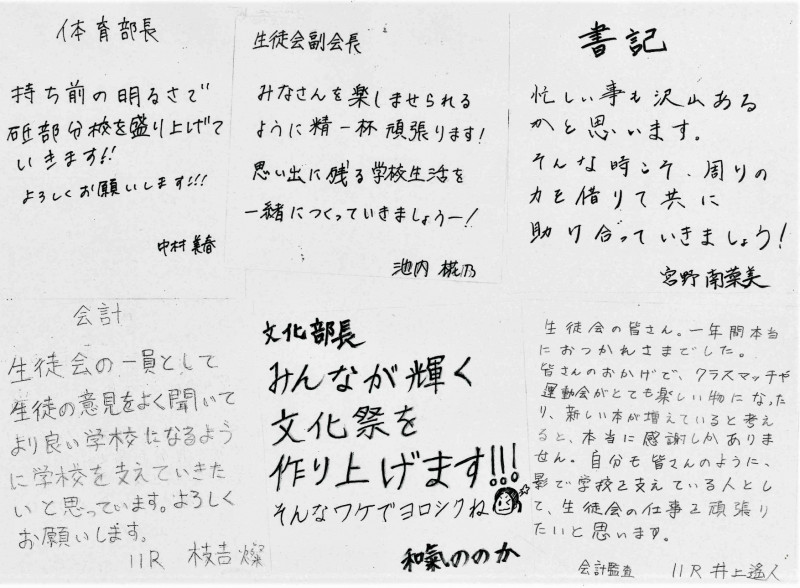 体育部長
持ち前の明るさで
砥部分校を盛り上げて
いきます!!
よろしくお願いします!!!
中村美春
生徒会副会長
みなさんを楽しませられる
ように精一杯頑張ります!
思い出に残る学校生活を
一緒につくっていきましょうー!
池内椛乃
書記
忙しい事も沢山ある
かと思います。
そんな時こそ、周りの
力を借りて共に
助け合っていきましょう!
宮野南菜美
会計
生徒会の一員として
生徒の意見をよく聞いて
より良い学校になるよう
に学校を支えていきた
いと思っています。よろしく
お願いします。
11R 枝吉燦
文化部長
みんなが輝く
文化祭を
作り上げます!!!
そんなワケでヨロシクね
和氣ののか
生徒会の皆さん。一年間本当
におつかれさまでした。
皆さんのおかげで、クラスマッチや
運動会がとても楽しい物になった
り、新しい本が増えていると考え
ると、本当に感謝しかありま
せん。自分も皆さんのように、
影で学校を支えている人とし
て、生徒会の仕事を頑張り
たいと思います。
会計監査 11R 井上遙人